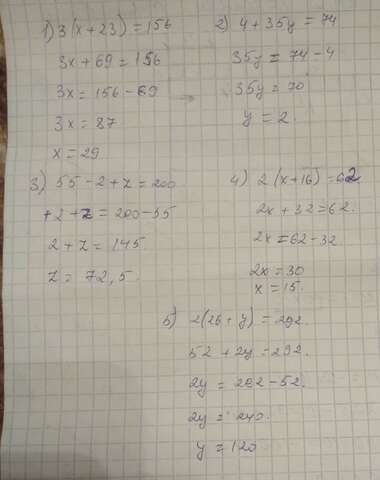 1) 3(x+23)=156
3x+69=156
3x=156-69
3x=87
x=29
2) 4+35y=74
35y=74-4
35y=70
y=2.
3) 55-2+z=200
+2+z=200-55
2+z=145
z=72,5.
4) 2(x+16)=62
2x+32=62.
2x=62-32.
2x=30
x=15.
5) 2(26+y)=292.
52+2y=292.
2y=292-52.
2y=240.
y=120